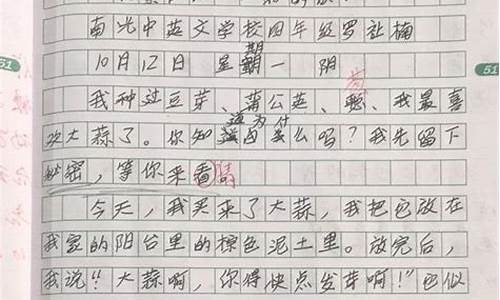 南光中英文学校四年级罗祉楠
期
10月12日 星期一 阴
葱
我种过豆芽、蒲公英、聪、我最喜
道为什
欢大蒜了。你知么吗？我先留下
秘密，等你来看。猜
今天，我买来了大蒜，我把它放在
我家的阳台里的棕色泥土里。放完后，
我说“大蒜啊，你得快点发芽啊！”它似
51